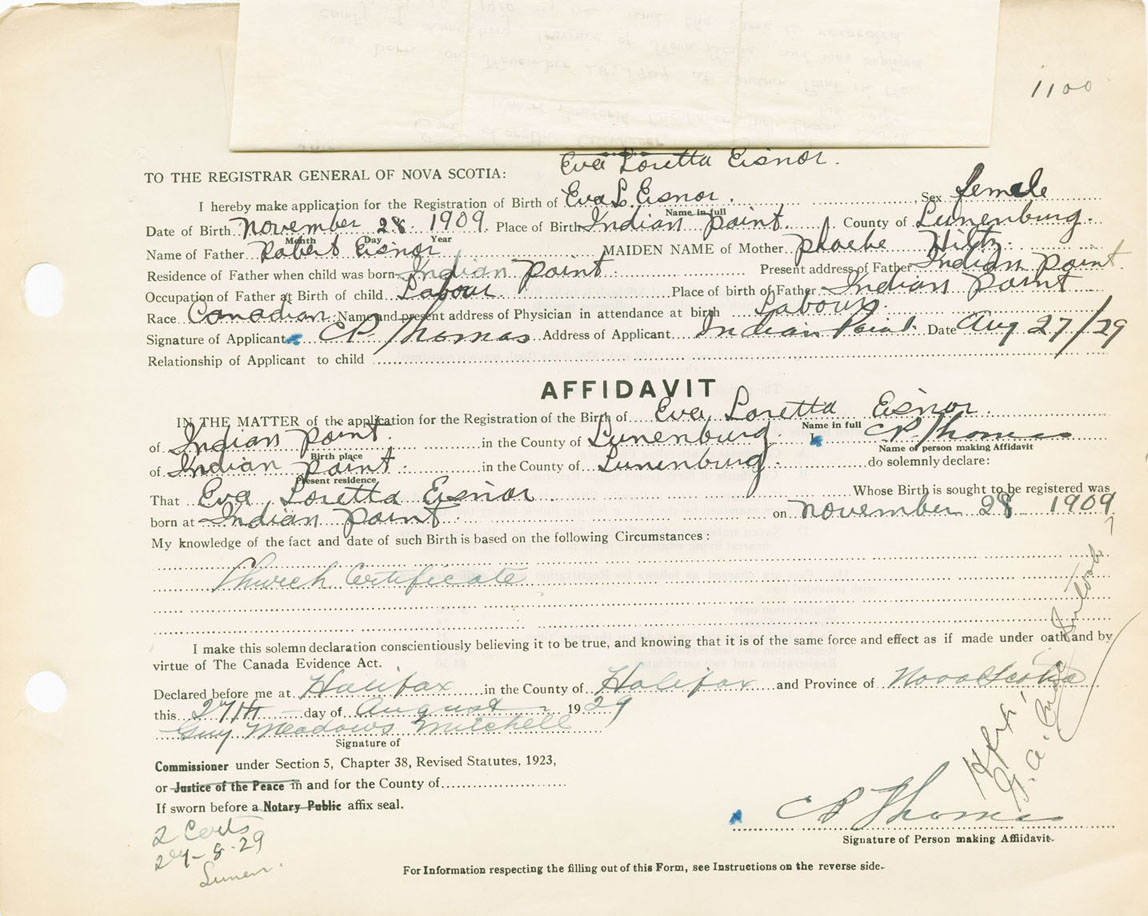 1100
Eva Loretta Eisnor.
TO THE REGISTRAR GENERAL OF NOVA SCOTIA:
I hereby make application for the Registration of Birth of Eva L. Eisnor. Sex female
Name in full
Date of Birth November 28 1909. Place of Birth Indian Point County of Lunenburg.
Month Day Year
Name of Father Robert Eisnor MAIDEN NAME of Mother Phoebe Hiltz.
Residence of Father when child was born Indian Point Present address of Father Indian Point.
Occupation of Father at Birth of child Labour. Place of birth of Father Indian Point
Race Canadian. Name and present address of Physician in attendance at birth Labour
Signature of Applicant CP Thomas Address of Applicant Indian Point. Date Aug 27/29
Relationship of Applicant to child
AFFIDAVIT
IN THE MATTER of the application for the Registration of the Birth of Eva Loretta Eisnor.
Name in full
of Indian Point. in the County of Lunenburg. I, CP Thomas
Birth place Name of person making Affidavit
of Indian Point. in the County of Lunenburg. do solemnly declare:
Present residence
That Eva Loretta Eisnor Whose Birth is sought to be registered was
born at Indian Point on November 28 1909
My knowledge of the fact and date of such Birth is based on the following Circumstances:
Church Certificate
I make this solemn declaration conscientiously believing it to be true, and knowing that it is of the same force and effect as if made under oath and by
virtue of The Canada Evidence Act.
Declared before me at Halifax in the County of Halifax and Province of Nova Scotia
this 27th day of August 1929
Guy Meadows Mitchell
Signature of
Commissioner under Section 5, Chapter 38, Revised Statutes, 1923,
or Justice of the Peace in and for the County of
If sworn before a Notary Public affix seal.
CP Thomas
Signature of Person making Affidavit.
2 Certs
27-8-29
Lunen.
For Information respecting the filling out of this Form, see Instructions on the reverse side.